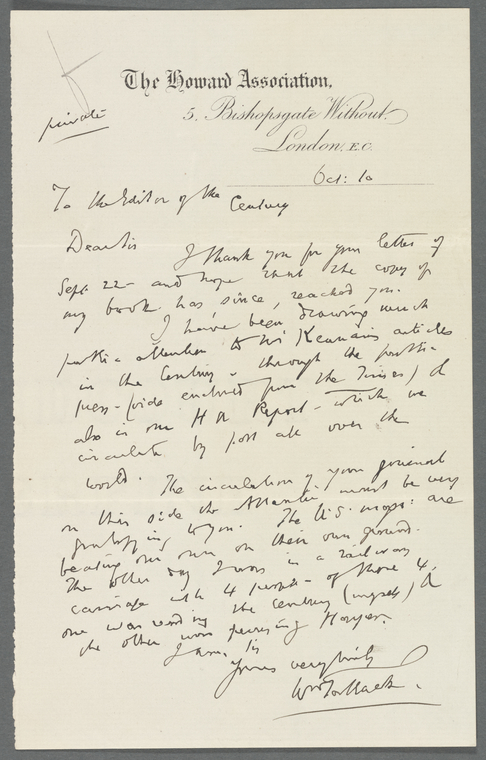 The Howard Association,
5, Bishopsgate Without,
private
London, E.C.
Oct: 10
To the Editor of the Century
Dear Sir I thank you for your letter of
Sept. 22 - and hope that the copy of
my book has since, reached you.
I have been drawing much
public attention to Mr Kennan's articles
in the Century - through the public
press - (vide enclosed from the Times) &
also in our H A Report - which we
circulate by post all over the
world. The circulation of your journal
on this side the Atlantic must be very
gratifying to you. The U.S. mags: are
beating our own on their own ground.
The other day I was in a railway
carriage with 4 people - of these 4,
one was reading the Century (myself) &
the other was perusing Harper.
I am, Sir
Yours very truly
Wm Tallack.